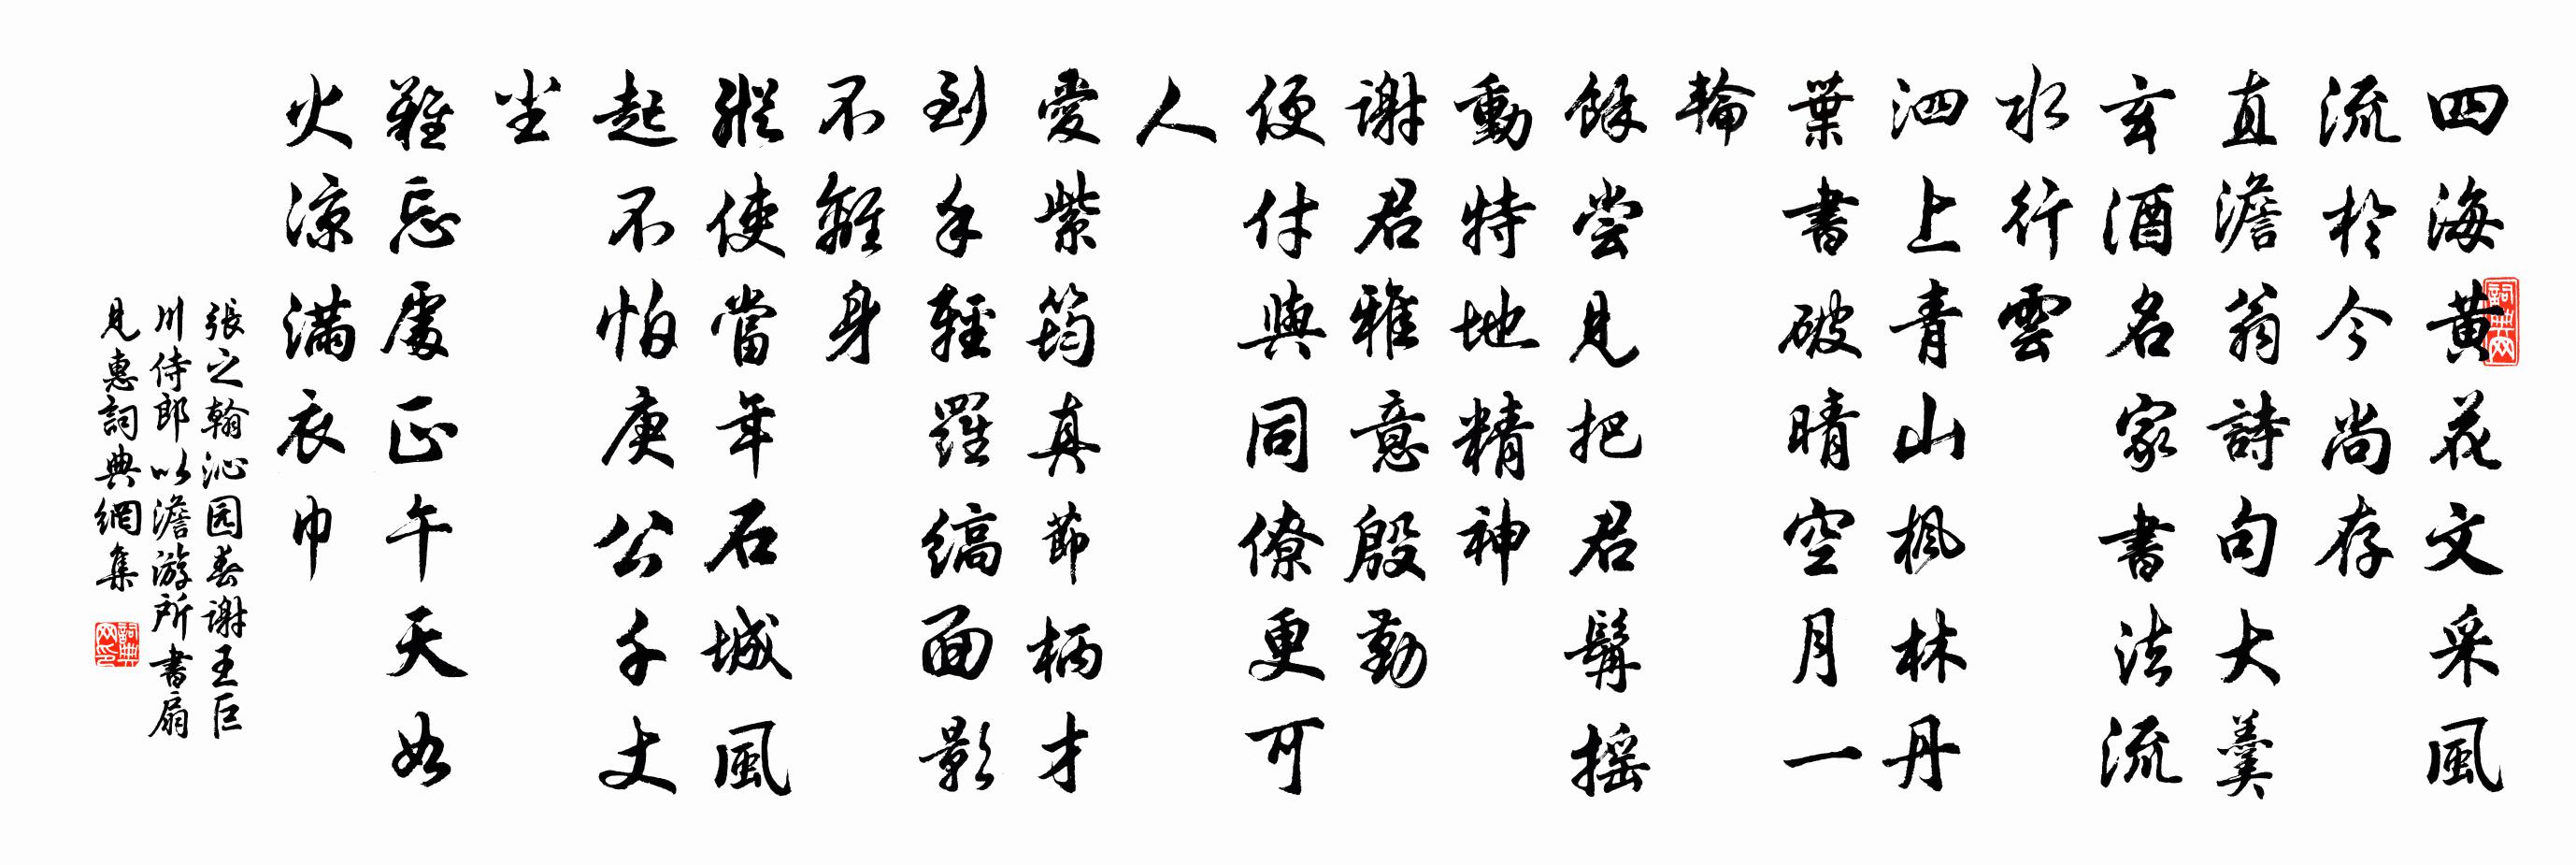 四海黄花文采風
流於今尚存
直澹翁詩句大羹
玄酒名家書法流
水行雲
泗上青山楓林丹
葉書破晴空月一
輪
餘嘗見把君髯摇
動特地精神
謝君雅意殷勤
便付與同僚更可
人
愛紫筠真節柄才
到手輕羅縞面影
不離身
縱使當年石城風
起不怕庚公千丈
尘
難忘處正午天如
火凉满衣巾
張之翰沁园春謝王巨
川侍郎以澹游所書扇
見惠詞典網集
詞典网
詞典网印